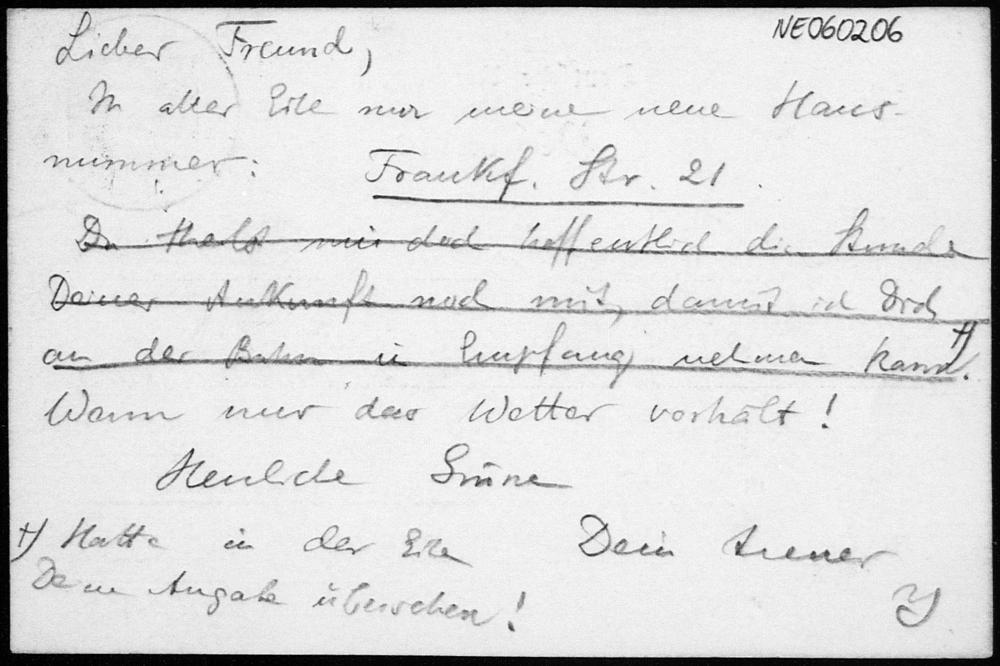 NE060206
Lieber Freund,
In aller Eile nur meine neue Haus-
nummer: Frankf. Str. 21.
Du theilst mir doch hoffentlich die Stunde
Deiner Ankunft noch mit, damit ich Dich
an der Bahn in Empfang nehmen kann †).
Wenn nur das Wetter vorhält!
Herzliche Grüsse
Dein treuer
†) Hatte in der Eile
Deine Angabe übersehen!